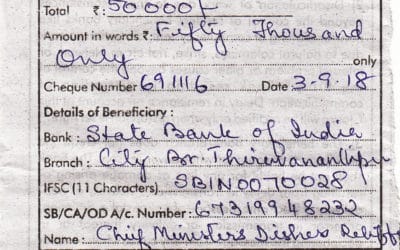 Total ₹: 50000/-
Amount in words ₹: Fifty Thousand
Only only
Cheque Number 691116 Date 3-9.18
Details of Beneficiary :
Bank : State Bank of India
Branch : City Br. Thiruvananthpu
IFSC (11 Characters) SBIN0070028
SB/CA/OD A/c. Number : 67319948232
Name : Chief Ministers Distress Relief